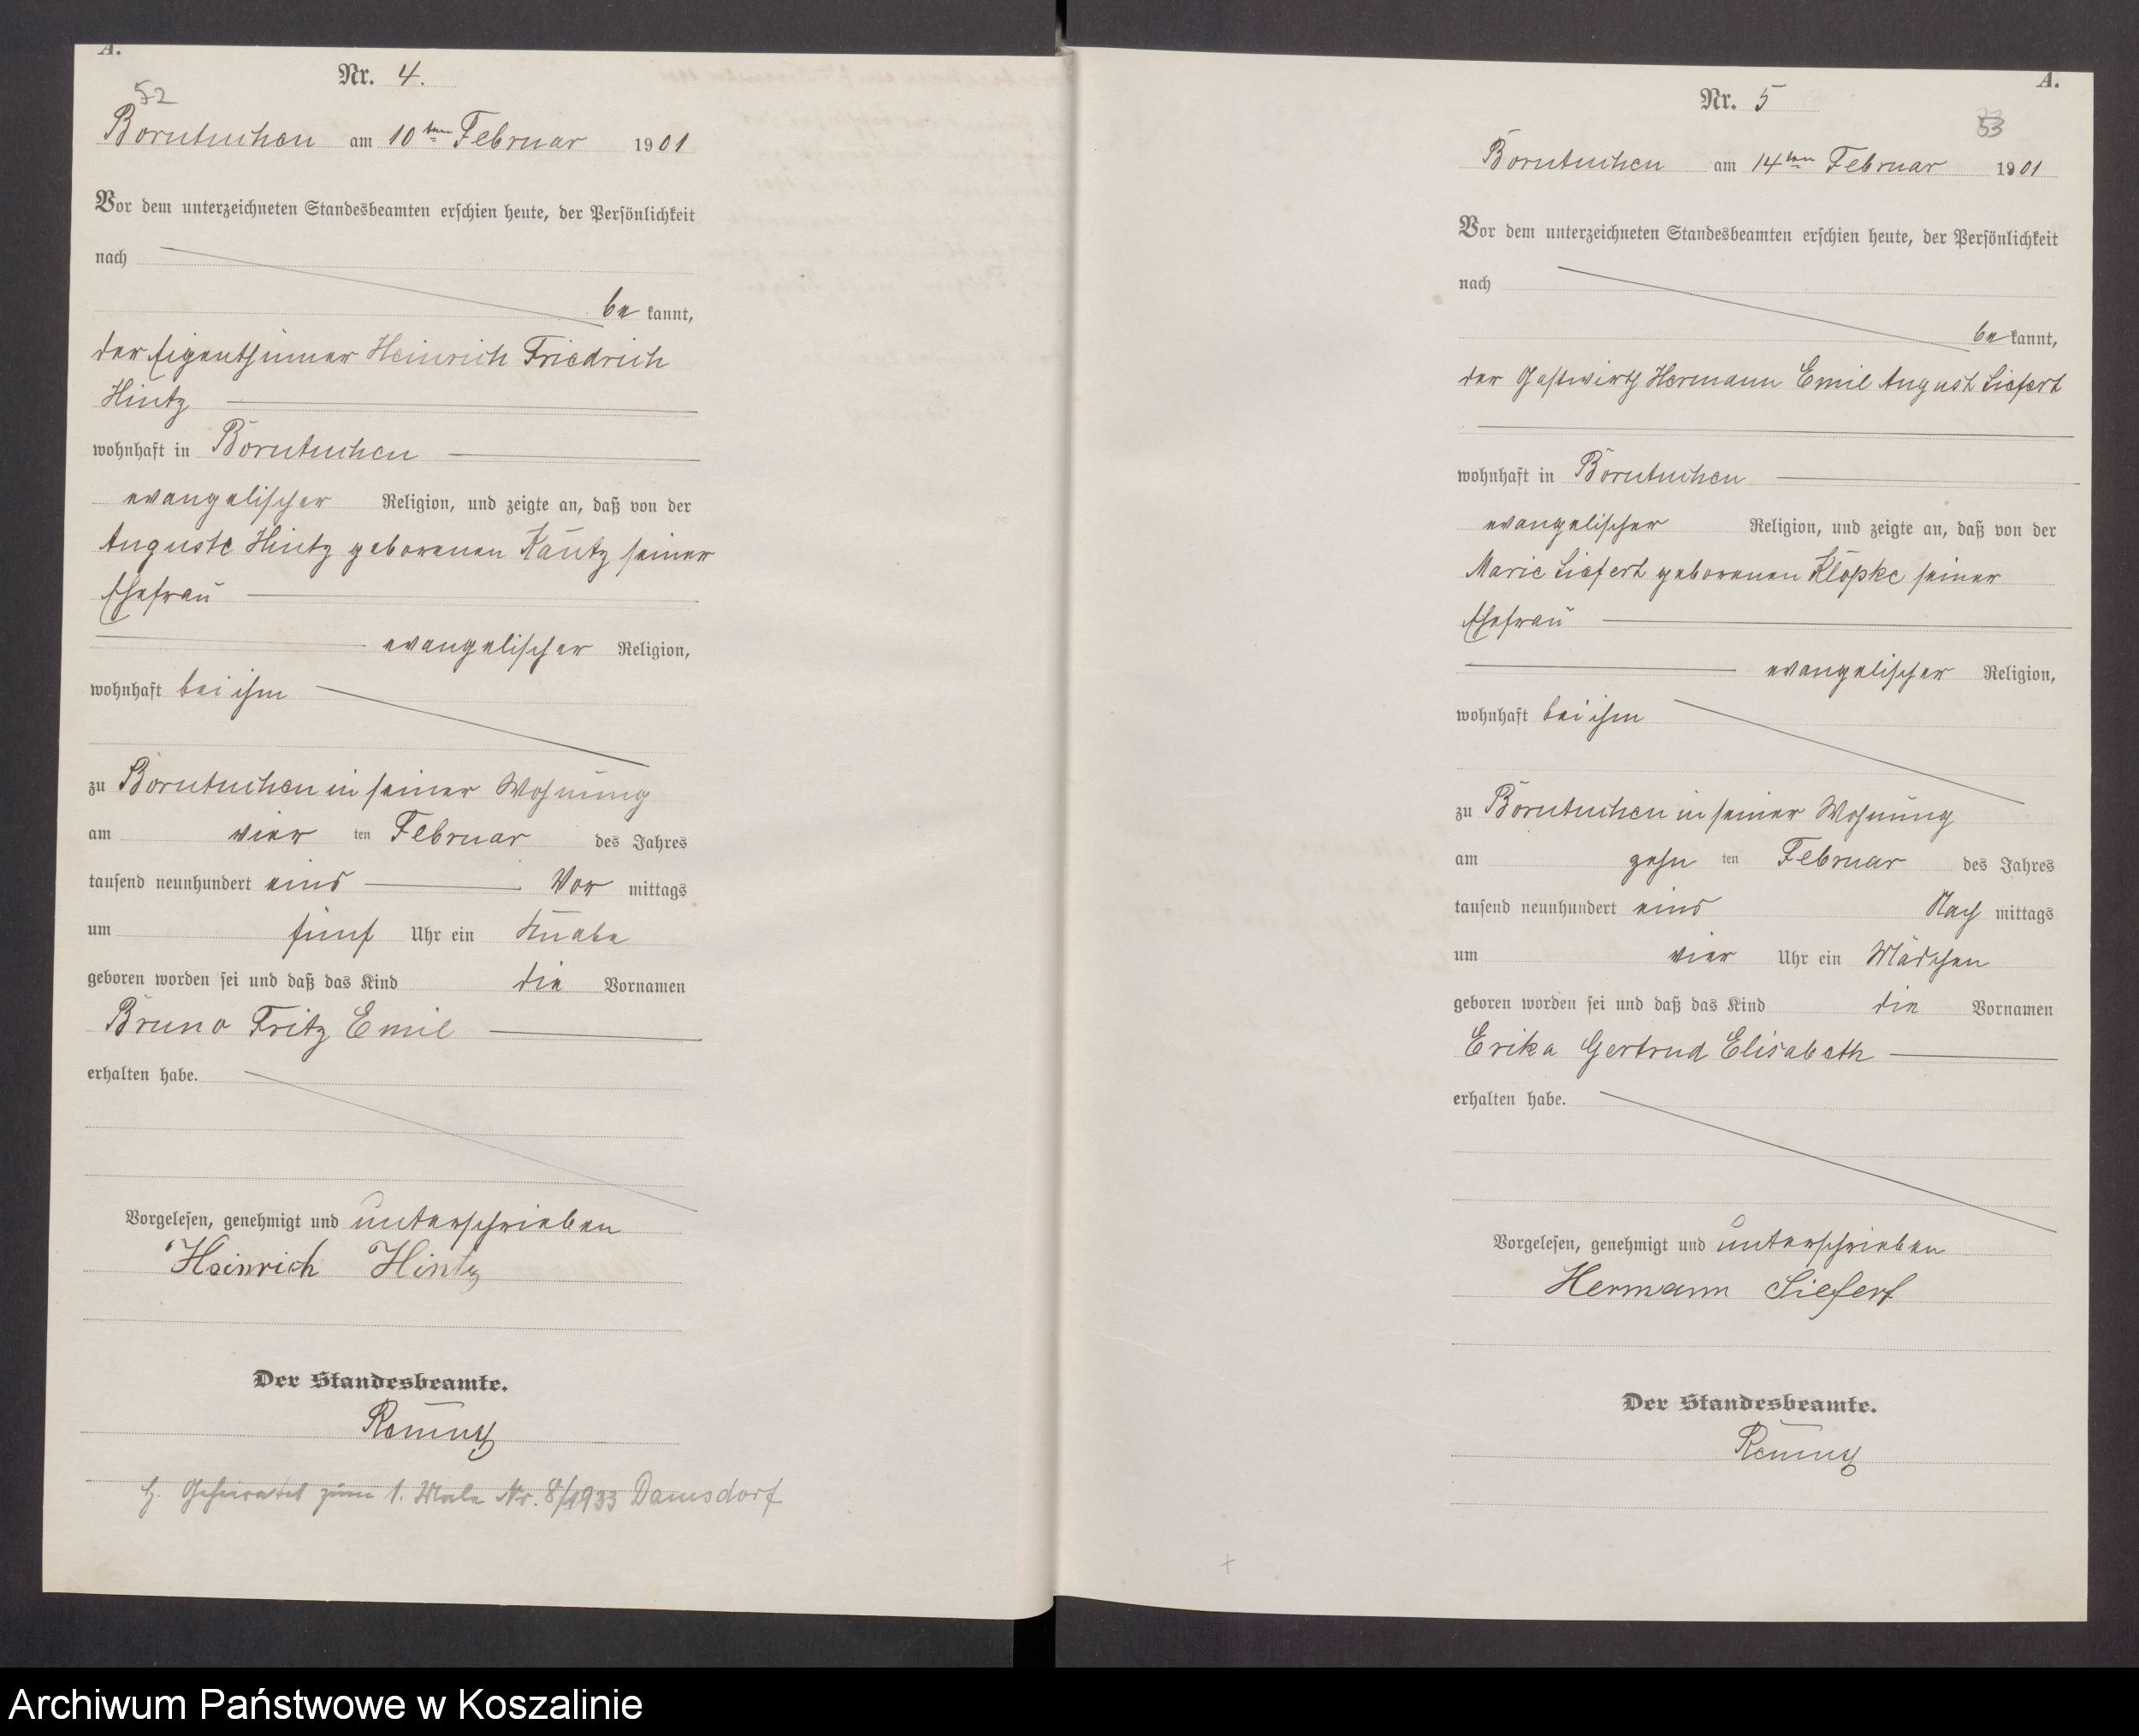 A.
Nr. 4.
52
Borntuchen am 10ten Februar 1901
Vor dem unterzeichneten Standesbeamten erschien heute, der Persönlichkeit
nach
be kannt,
der Eigenthümer Heinrich Friedrich
Hintz
wohnhaft in Borntuchen
evangelischer Religion, und zeigte an, daß von der
Auguste Hintz geborenen Kautz seiner
Ehefrau
evangelischer Religion,
wohnhaft bei ihm
zu Borntuchen in seiner Wohnung
am vier ten Februar des Jahres
tausend neunhundert eins Vor mittags
um fünf Uhr ein Knabe
geboren worden sei und daß das Kind die Vornamen
Bruno Fritz Emil
erhalten habe.
Vorgelesen, genehmigt und unterschrieben
Heinrich Hintz
Der Standesbeamte.
H. Geheiratet zum 1. Male Nr. 8/1933 Damsdorf
A.
Nr. 5
53
Borntuchen am 14ten Februar 1901
Vor dem unterzeichneten Standesbeamten erschien heute, der Persönlichkeit
nach
be kannt,
der Gastwirth Hermann Emil August Siefert
wohnhaft in Borntuchen
evangelischer Religion, und zeigte an, daß von der
Marie Siefert geborenen Klopke seiner
Ehefrau
evangelischer Religion,
wohnhaft bei ihm
zu Borntuchen in seiner Wohnung
am zehn ten Februar des Jahres
tausend neunhundert eins Nach mittags
um vier Uhr ein Mädchen
geboren worden sei und daß das Kind die Vornamen
Erika Gertrud Elisabeth
erhalten habe.
Vorgelesen, genehmigt und unterschrieben
Hermann Siefert
Der Standesbeamte.
Archiwum Państwowe w Koszalinie